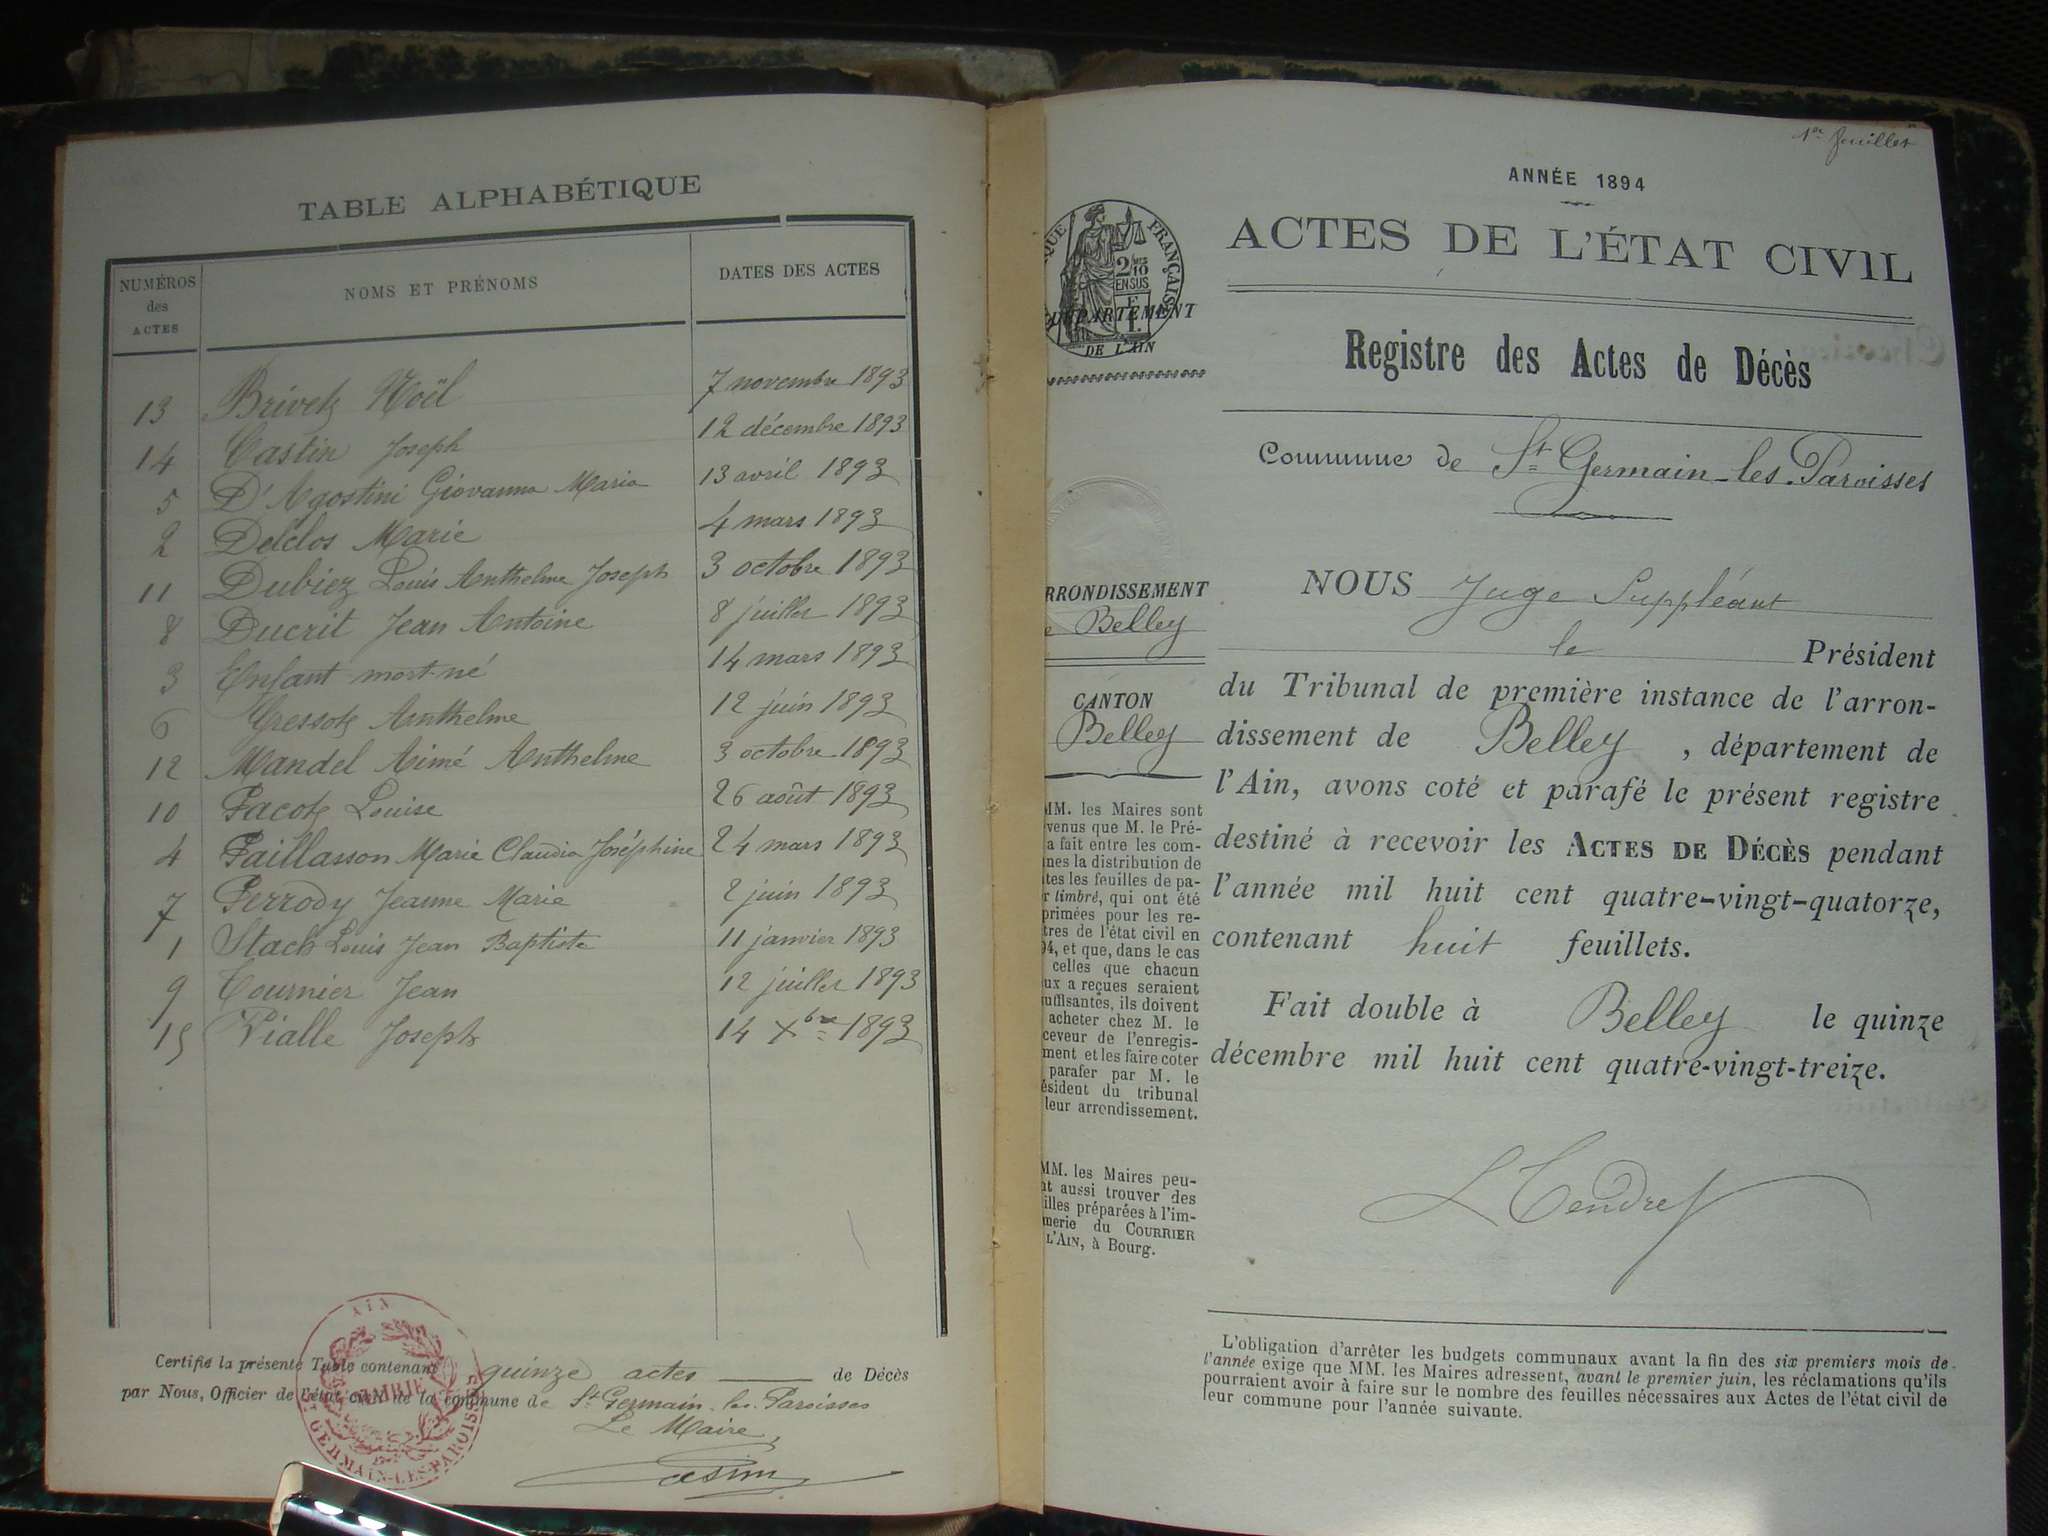 TABLE ALPHABÉTIQUE
NUMÉROS des ACTES
NOMS ET PRÉNOMS
DATES DES ACTES
13 Brivet Noël 7 novembre 1893
14 Castin Joseph 12 décembre 1893
5 D'Agostini Giovanna Maria 13 avril 1893
2 Delclos Marie 4 mars 1893
11 Dubiez Louis Anthelme Joseph 3 octobre 1893
8 Ducrit Jean Antoine 8 juillet 1893
3 Enfant mort-né 14 mars 1893
6 Gressot Anthelme 12 juin 1893
12 Mandel Aimé Anthelme 3 octobre 1893
10 Pacot Louise 26 août 1893
4 Paillasson Marie Claudia Joséphine 24 mars 1893
7 Perrody Jeanne Marie 2 juin 1893
1 Stach Louis Jean Baptiste 11 janvier 1893
9 Tournier Jean 12 juillet 1893
15 Vialle Joseph 14 Xbre 1893
Certifié la présente Table contenant quinze actes de Décès
par Nous, Officier de l'état civil de la commune de St Germain-les-Paroisses
Le Maire,
AIN
MAIRIE
ST GERMAIN-LES-PAROISSES
1er feuillet
ANNÉE 1894
ACTES DE L'ÉTAT CIVIL
Registre des Actes de Décès
Commune de St Germain-les-Paroisses
QUE FRANÇAISE
2/10
EN SUS
DÉPARTEMENT
DE L'AIN
RRONDISSEMENT
e Belley
CANTON
Belley
MM. les Maires sont
venus que M. le Pré-
a fait entre les com-
nes la distribution de
tes les feuilles de pa-
r timbré, qui ont été
primées pour les re-
tres de l'état civil en
94, et que, dans le cas
celles que chacun
ux a reçues seraient
uffisantes, ils doivent
acheter chez M. le
ceveur de l'enregis-
ment et les faire coter
parafer par M. le
ésident du tribunal
leur arrondissement.
MM. les Maires peu-
nt aussi trouver des
illes préparées à l'im-
merie du COURRIER
L'AIN, à Bourg.
NOUS Juge Suppléant
le Président
du Tribunal de première instance de l'arron-
dissement de Belley, département de
l'Ain, avons coté et parafé le présent registre
destiné à recevoir les ACTES DE DÉCÈS pendant
l'année mil huit cent quatre-vingt-quatorze,
contenant huit feuillets.
Fait double à Belley le quinze
décembre mil huit cent quatre-vingt-treize.
L Tendret
L'obligation d'arrêter les budgets communaux avant la fin des six premiers mois de
l'année exige que MM. les Maires adressent, avant le premier juin, les réclamations qu'ils
pourraient avoir à faire sur le nombre des feuilles nécessaires aux Actes de l'état civil de
leur commune pour l'année suivante.